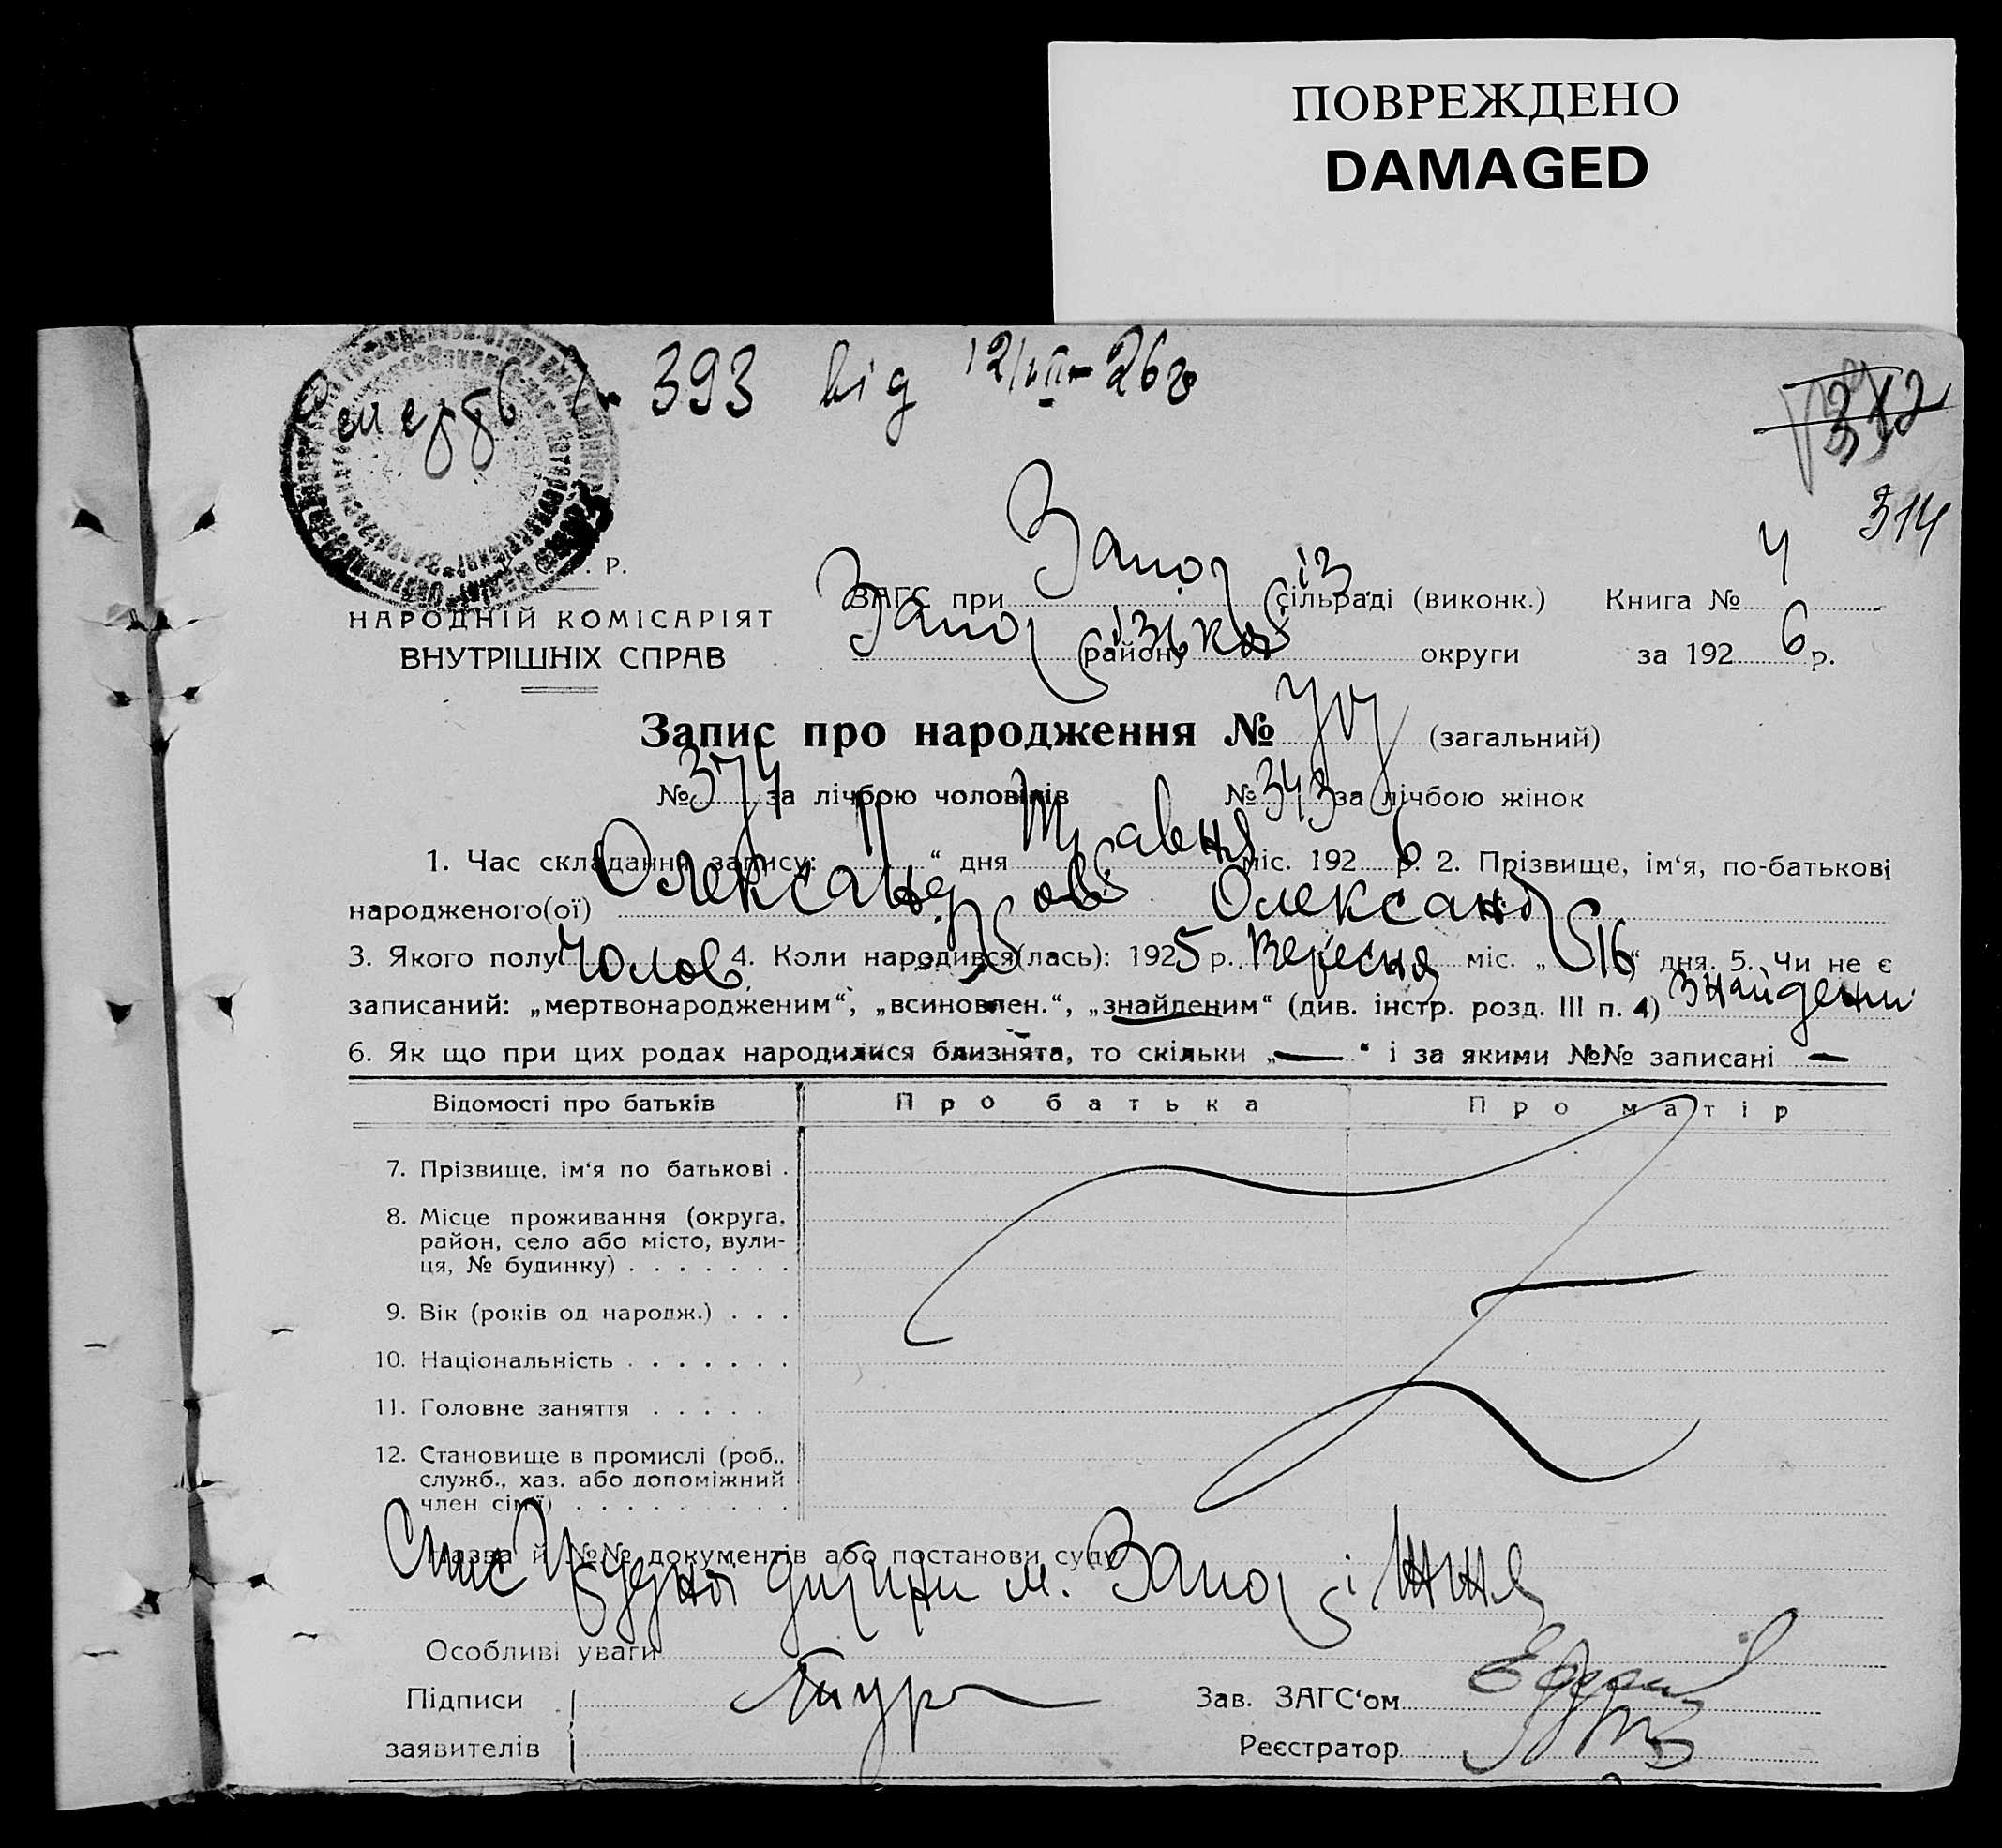 ПОВРЕЖДЕНО
DAMAGED
393 від 12/VII-26 г
312
314
Р.
НАРОДНІЙ КОМІСАРІЯТ
ВНУТРІШНІХ СПРАВ
ЗАГС при Запоріз сільраді (виконк.) Книга № 4
Запорізької району округи за 1926 р.
Запис про народження № 717 (загальний)
№ 374 за лічбою чоловіків № 343 за лічбою жінок
1. Час складання запису: 11 “ дня Травня міс. 1926 р. 2. Прізвище, ім‘я, по-батькові
народженого(ої) Олександров Олександр
3. Якого полу Чолов. 4. Коли народився(лась): 1925 р. Вересня міс. „16“ дня. 5. Чи не є
записаний: „мертвонародженим“, „всиновлен.“, „знайденим“ (див. інстр. розд. III п. 4) знайдени
6. Як що при цих родах народилися близнята, то скільки „—“ і за якими №№ записані —
Відомості про батьків Про батька Про матір
7. Прізвище, ім‘я по батькові .
8. Місце проживання (округа,
район, село або місто, вули-
ця, № будинку) . . . . . . .
9. Вік (років од народж.) . . .
10. Національність . . . . . . .
11. Головне заняття . . . . .
12. Становище в промислі (роб..
служб., хаз. або допоміжний
член сім‘ї) . . . . . . . . .
Назва й №№ документів або постанови суду
Спис Будуна дитини м. Запоріжжя
Особливі уваги
Підписи Зав. ЗАГС‘ом
заявителів Реєстратор